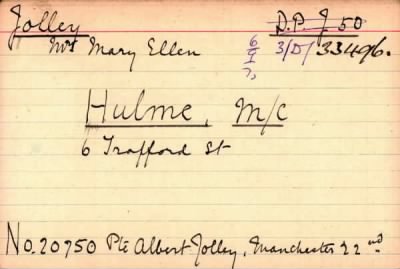 Jolley D.P. J 50
Mrs Mary Ellen 3/D/ 33496.
Hulme, M/c
6 Trafford St
No. 20750 Pte Albert Jolley, Manchester 22nd